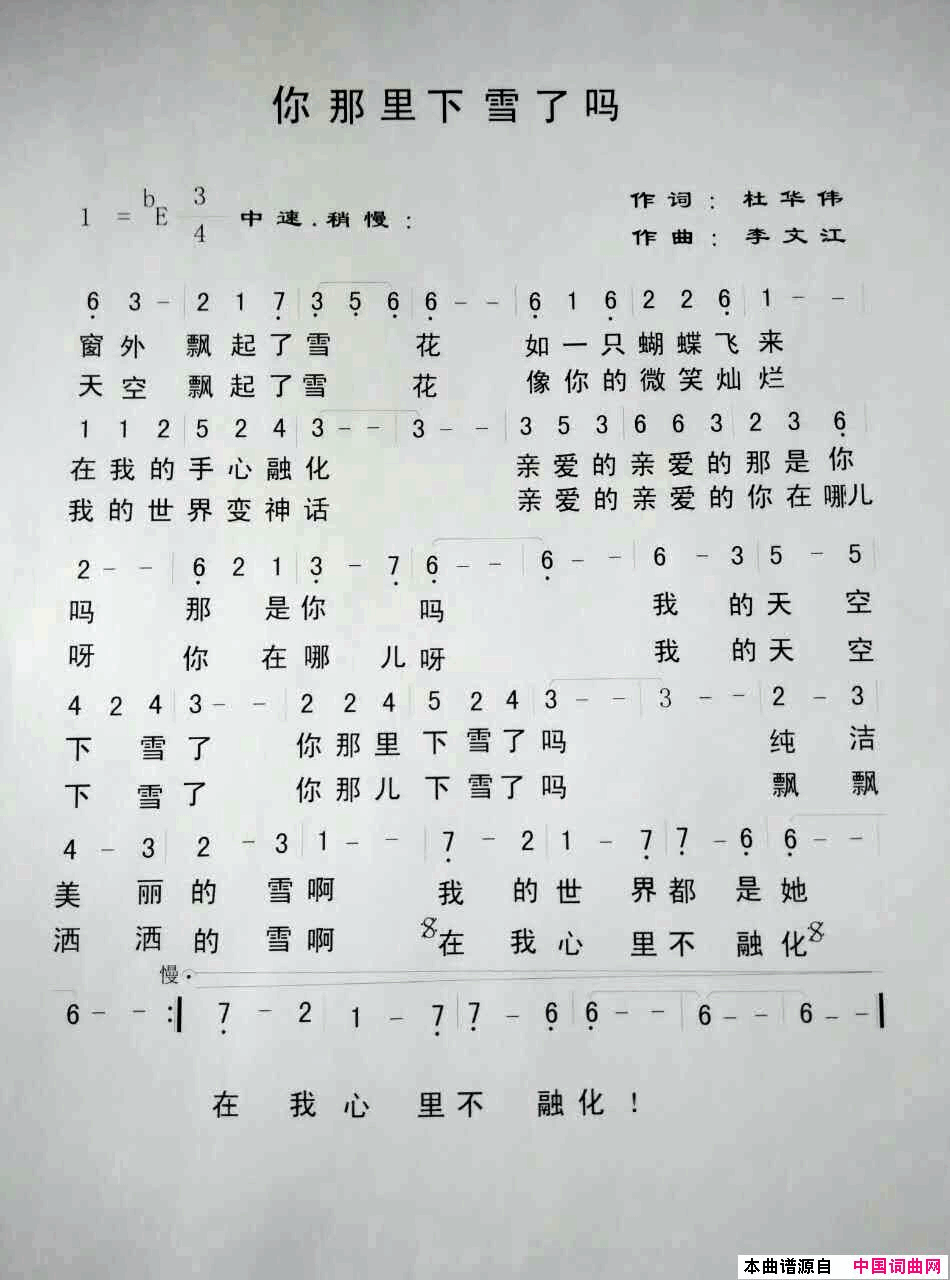 你那里下雪了吗
1 = bE 3/4 中速.稍慢:
作词:杜华伟
作曲:李文江
6 3 - | 2 1 7 | 3 5 6 | 6 - - | 6 1 6 | 2 2 6 | 1 - - |
窗外飘起了雪花 如一只蝴蝶飞来
天空飘起了雪花 像你的微笑灿烂
1 1 2 | 5 2 4 | 3 - - | 3 - - | 3 5 3 | 6 6 3 | 2 3 6 |
在我的手心融化 亲爱的亲爱的那是你
我的世界变神话 亲爱的亲爱的你在哪儿
2 - - | 6 2 1 | 3 - 7 | 6 - - | 6 - - | 6 - 3 | 5 - 5 |
吗 那是你吗 我的天空
呀 你在哪儿呀 我的天空
4 2 4 | 3 - - | 2 2 4 | 5 2 4 | 3 - - | 3 - - | 2 - 3 |
下雪了 你那里下雪了吗 纯洁
下雪了 你那儿下雪了吗 飘飘
4 - 3 | 2 - 3 | 1 - - | 7 - 2 | 1 - 7 | 7 - 6 | 6 - - |
美丽的雪啊 我的世界都是她
洒洒的雪啊 在我心里不融化
慢
6 - - :| 7 - 2 | 1 - 7 | 7 - 6 | 6 - - | 6 - - | 6 - - |
在我心里不融化!
本曲谱源自 中国词曲网